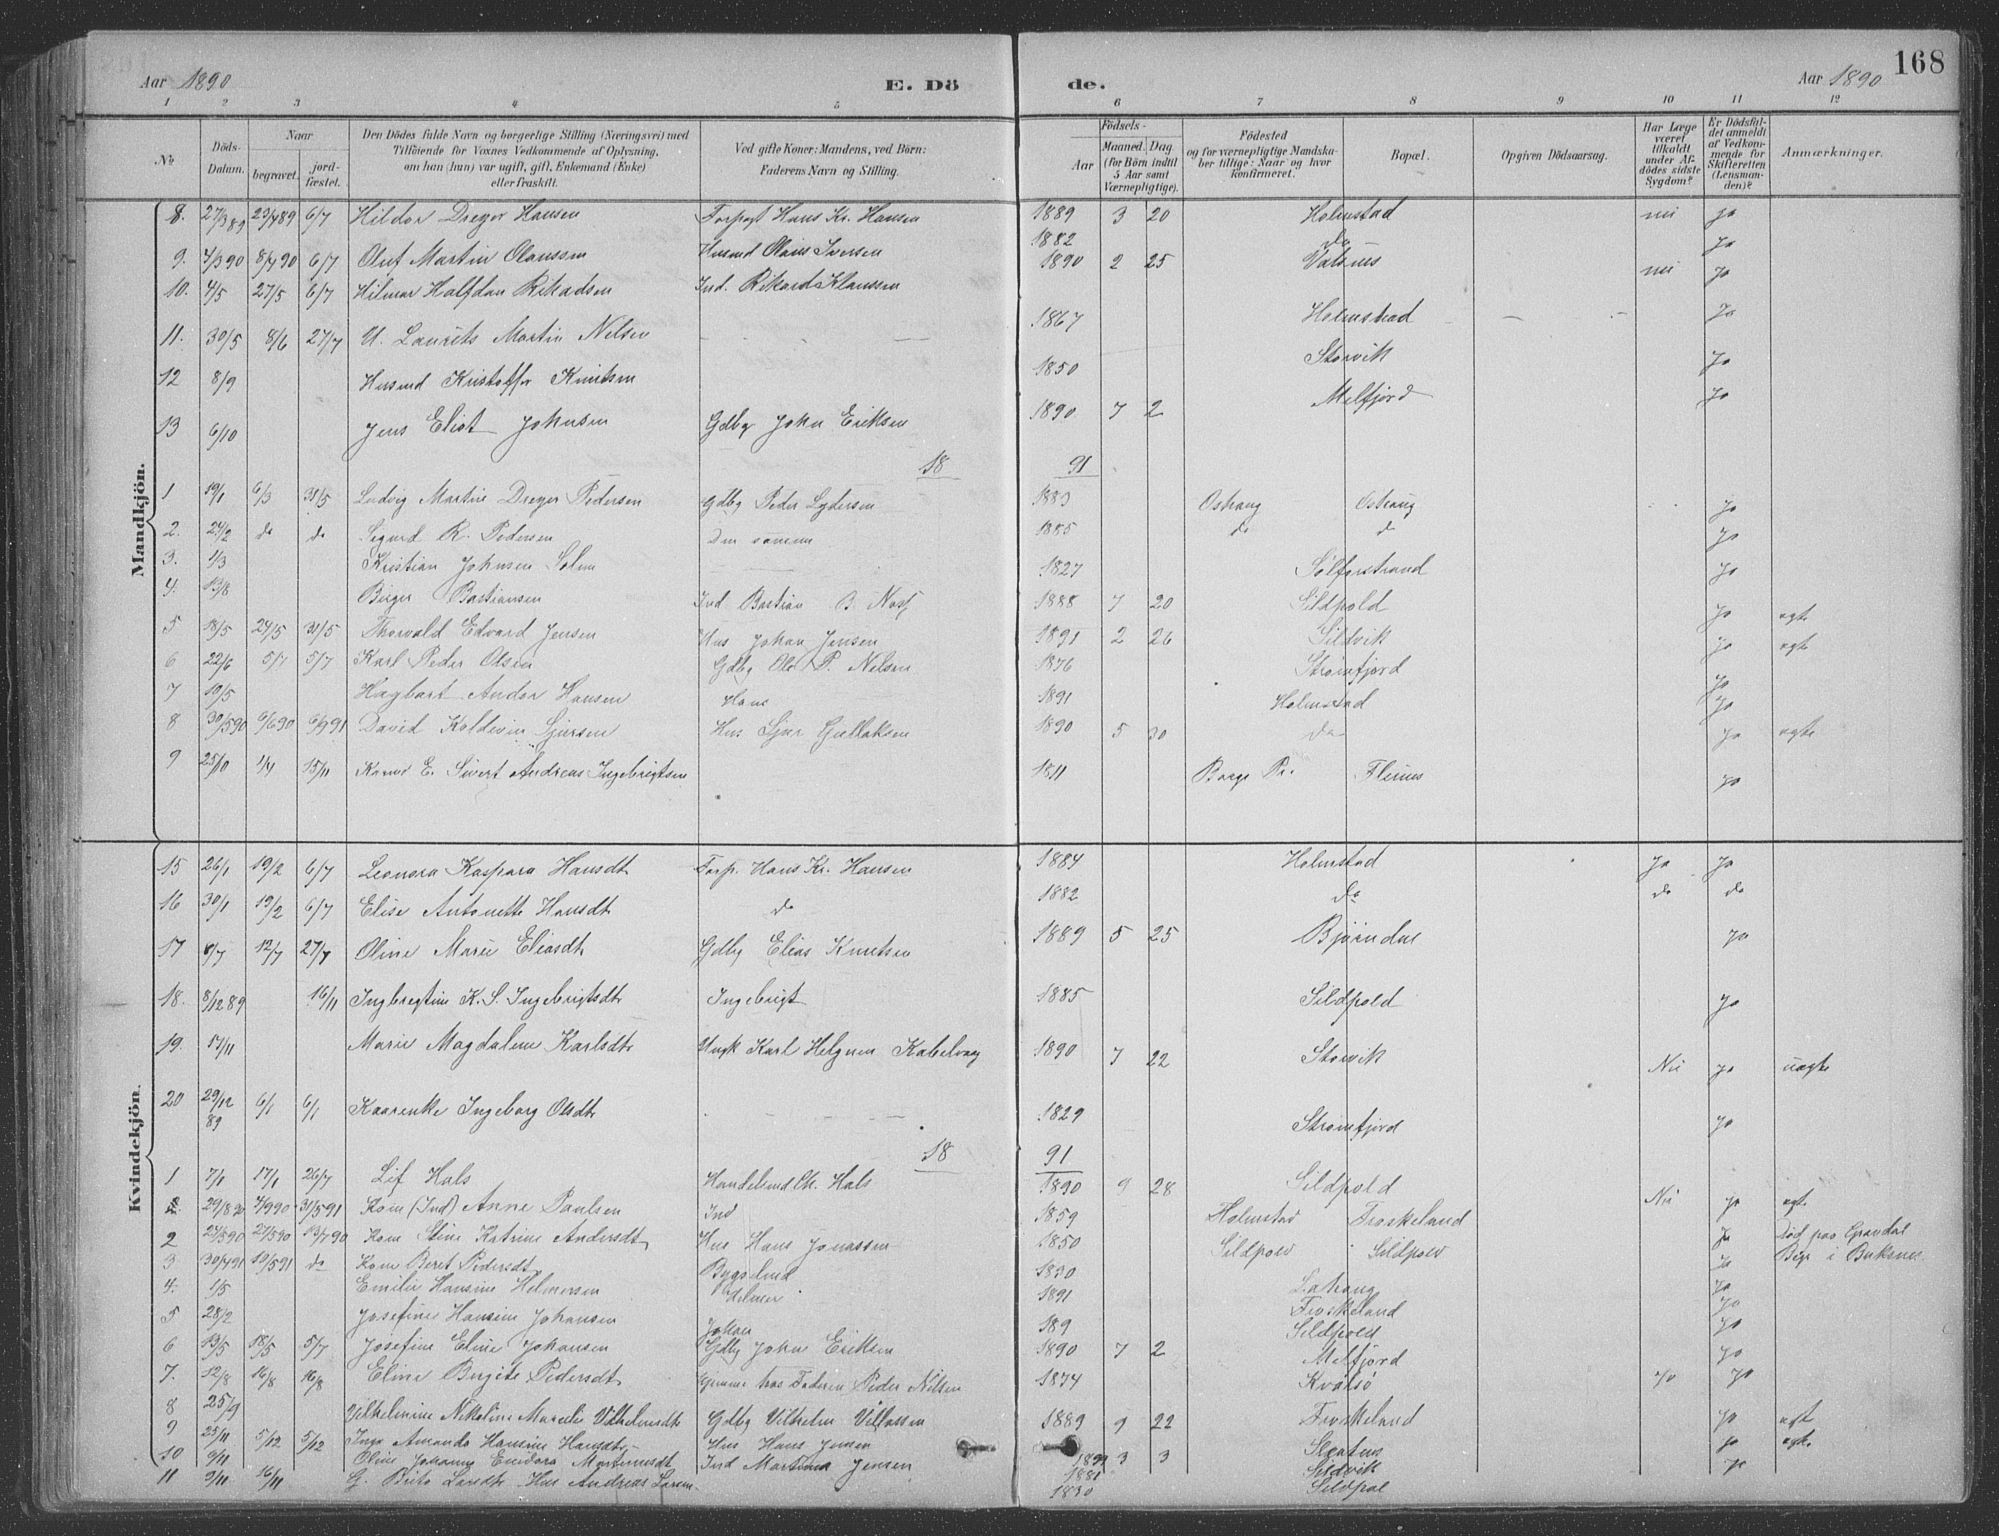 Aar 1890 E. Dö de. Aar 1890 168
1 2 3 4 5 6 7 8 9 10 11 12
No Döds-Datum. Naar begravet. jord-fæstet. Den Dödes fulde Navn og borgerlige Stilling (Næringsvei) med Tilföiende for Voxnes Vedkommende af Oplysning, om han (hun) var ugift, gift, Enkemand (Enke) eller fraskilt. Ved gifte Koner: Mandens, ved Börn: Faderens Navn og Stilling. Födsels- Aar Maaned. Dag (for Börn indtil 5 Aar samt Værnepligtige). Födested og for værnepligtige Mandskaber tillige: Naar og hvor konfirmeret. Bopæl. Opgiven Dödsaarsag. Har Læge været tilkaldt under Afdödes sidste Sygdom? Er Dödsfaldet anmeldt af Vedkommende for Skifteretten (Lensmanden)? Anmærkninger.
Mandkjön.
8. 27/3 89 23/4 89 6/7 Hildor Dreyer Hansen Forpagt Hans Kr. Hansen 1889 3 20 Holmstad nei ja
9. 4/3 90 8/4 90 6/7 Oluf Martin Olaussen Husmd Olaus Iversen 1882 do ja
10. 4/5 27/5 6/7 Hilmar Halfdan Rikadsen Ind. Rikard Klaussen 1890 2 25 Valsnes nei ja
11. 30/5 8/6 27/7 U. Laurits Martin Nilsen 1867 Holmstad ja
12 8/9 Husmd Kristoffer Knutsen 1850 Storvik ja
13 6/10 Jens Eliot Johnsen Gdbg John Eriksen 1890 7 2 Melfjord ja
18 91
1 19/1 6/3 31/5 Ludvig Martin Dreyer Pedersen Gdbg Peder Lydersen 1883 ja
2. 24/2 do do Sigurd R. Pedersen Den samme 1885 do do ja
3. 1/3 Kristian Johnsen Solem 1827 ja
4. 13/8 Birger Bastiansen Ind Bastian B. 1888 7 20 Sildpold ja egte
5 18/5 24/5 31/5 Thorvald Edvard Jensen Hus Johan Jensen 1891 2 26 Sildvik ja egte
6 22/6 5/7 5/7 Karl Peder Olsen Gdbg Ole P. Nilsen 1876 Strømfjord ja
7 10/5 Hagbart Andor Hansen Hans 1891 Holmstad ja
8 30/5 90 6/6 90 David Koldevin Sjursen Hus Sjur 1890 5 30 do ja egte
9 25/10 1/4 15/11 E. Sivert Andreas Ingebrigtsen 1811 Borge Pr. ja
Kvindekjön.
15 26/1 19/2 6/7 Leonora Kaspara Hansdt Forp. Hans Kr. Hansen 1884 Holmstad ja ja
16 30/1 19/2 6/7 Elise Antonette Hansdt do 1882 do do do
17 6/7 12/7 27/7 Oline Marie Eliasdt Gdbg Elias Knutsen 1889 5 25 ja
18. 8/12 89 16/11 Ingbregtine K. S. Ingebrigtsdt Ingebrigt 1885 Sildpold ja
19. 17/11 Marie Magdalene Karlsdt Ungk Karl Helgesen Kabelvaag 1890 7 22 Storvik Nei ja uegte
20 29/12 89 6/1 6/1 Kaarenke Ingeborg Olsdt 1829 Strømfjord ja
18 91
1 7/1 17/1 26/7 Lif Hals Handelsmd Hals 1890 9 28 Sildpold Nei ja egt
29/8 90 4/9 90 31/5 91 Kone (Ind) Anne Paulsen Ind 1859 Holmstad Froskeland
2 24/5 90 27/5 90 13/7 90 Kone Stine Katrine Andersdt Hus Hans Jonassen 1850 Sildpold Sildpold ja Død paa Gravdal
3 30/4 91 10/5 91 do Kone Beret Pedersdt Bygselmd 1830 ja i Buksnes
4. 1/5 Emilie Hansine Helmersen Helmer 1891 ja
5 28/2 Josefine Hansine Johansen Johan 189 Froskeland ja
6 13/5 18/5 5/7 Josefine Eline Johansen Gdbg John Eriksen 1890 7 2 Sildpold ja
7. 12/8 16/8 16/8 Eline Birgite Pedersdt hos Faderen Peder Nilsen 1874 Melfjord ja
8 25/9 Vilhelmine Nikoline Marelie Vilhelmsdt Gdbg Vilhelm 1889 9 22 Kvalsø Froskeland ja egt
9 25/11 5/12 5/12 Inga Amanda Hansine Hansdt Hus Hans Jensen 3 3 ja egte
10 9/11 Oline Johanna Mortensdt Ind Jensen 1881 Sildvik ja
11 9/11 16/11 G. Larsdt Hus Andreas Larsen 1830 Sildpol